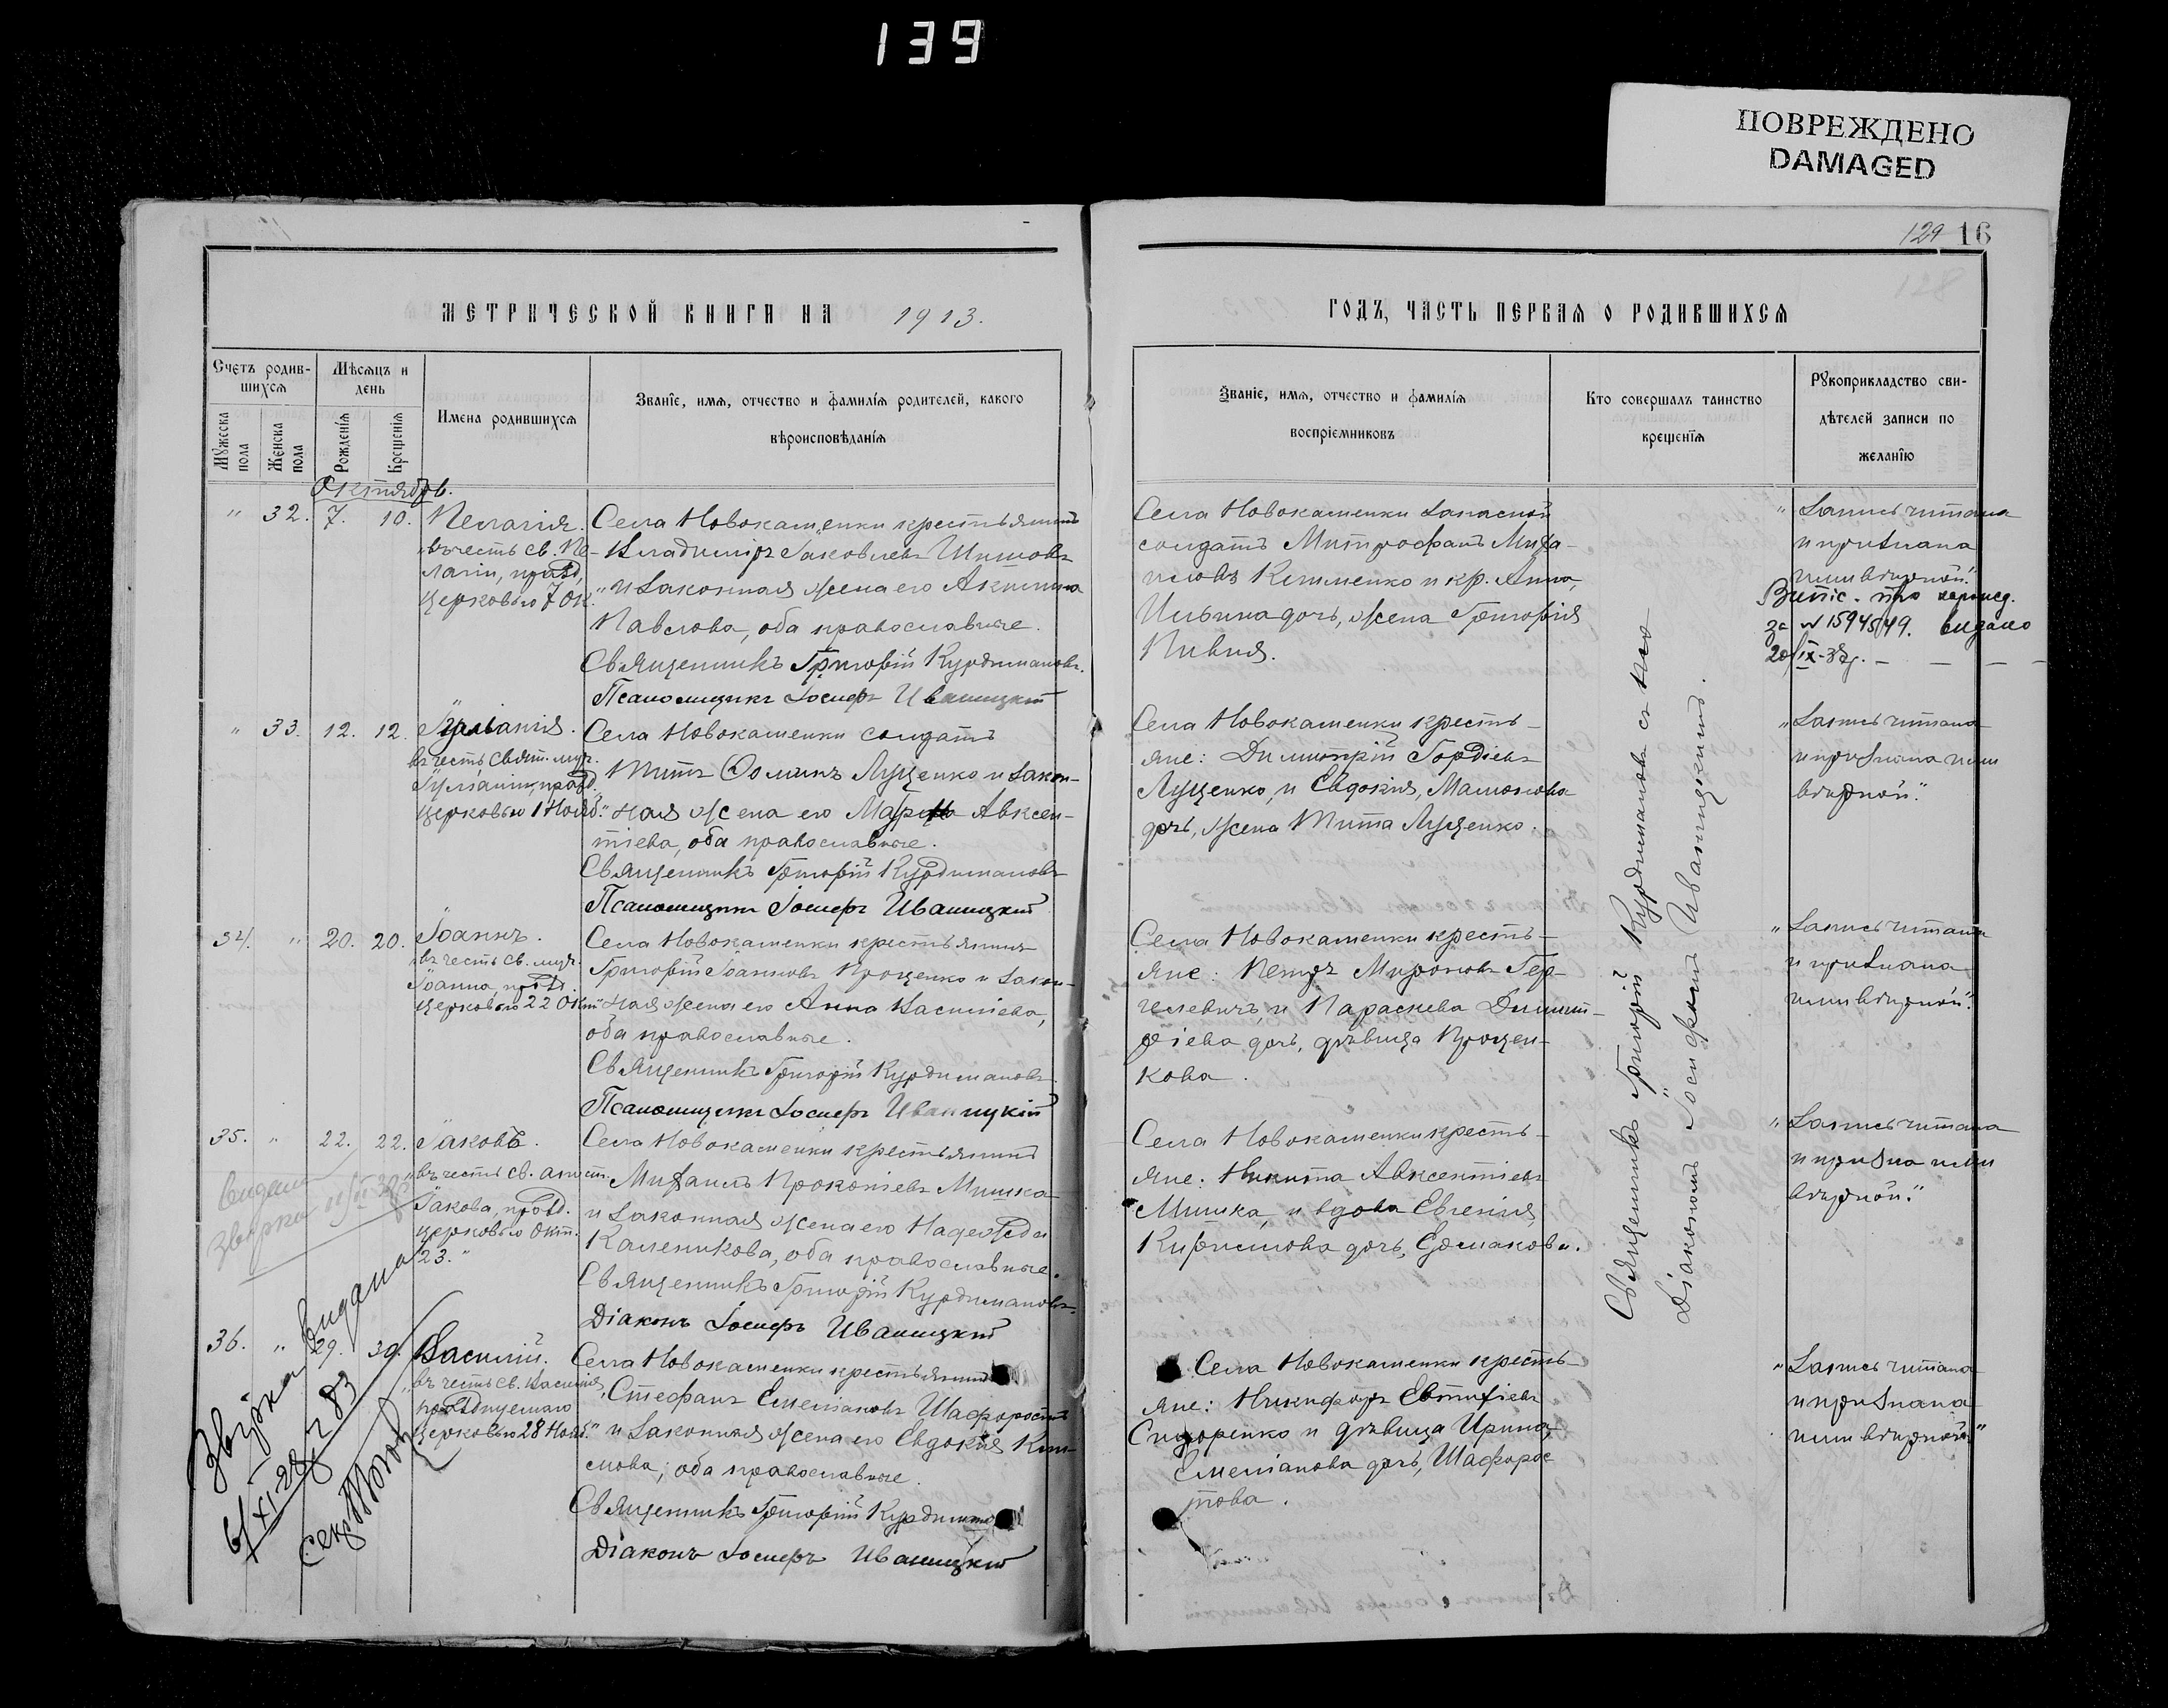 139
ПОВРЕЖДЕНО
DAMAGED
129 16
128
МЕТРИЧЕСКОЙ КНИГИ НА 1913.
Счетъ родив-
шихся
Мѣсяцъ и
день
Мужеска пола
Женска пола
Рожденія
Крещенія
Имена родившихся
Званіе, имя, отчество и фамилія родителей, какого
вѣроисповѣданія
Октябрь.
" 32. 7. 10. Пелагія.
"въ честь св. Пе-
лагіи, празд.
церковью 7 Ок."
Села Новокаменки крестьянинъ
Владиміръ Іаковлевъ Шишовъ
и законная жена его Акилина
Павлова, оба православные.
Священникъ Григорій Курдимановъ.
Псаломщикъ Іосифъ Иваницкій
" 33. 12. 12. Іуліанія.
въ честь свят. муч.
Іуліаніи, празд.
церковью 1 Нояб."
Села Новокаменки солдатъ
Титъ Ѳоминъ Луценко и закон-
ная жена его Марина Авксен-
тіева, оба православные.
Священникъ Григорій Курдимановъ
Псаломщикъ Іосифъ Иваницкій
34. " 20. 20. Іоаннъ.
"въ честь св. муч.
Іоанна, празд.
церковью 22 Окт."
Села Новокаменки крестьянинъ
Григорій Іоанновъ Проценко и закон-
ная жена его Анна Васильева,
оба православные.
Священникъ Григорій Курдимановъ.
Псаломщикъ Іосифъ Иваницкій
35. " 22. 22. Іаковъ.
"въ честь св. апост.
Іакова, празд.
церковью Окт.
23."
Села Новокаменки крестьянинъ
Михаилъ Прокопіевъ Мишка
и законная жена его Надежда
Каленикова, оба православные.
Священникъ Григорій Курдимановъ.
Діаконъ Іосифъ Иваницкій
видана
звірка
36. " 29. 30. Василій.
"въ честь св. Василія,
празднуемаго
церковью 28 Нояб."
Села Новокаменки крестьянинъ
Стефанъ Емеліановъ Шафоростъ
и законная жена его Евдокія Кли-
мова, оба православные.
Священникъ Григорій Курдиманов
Діаконъ Іосифъ Иваницкій
Звірка видана
6/XI-28 283
Секр.
ГОДЪ, ЧАСТЬ ПЕРВАЯ О РОДИВШИХСЯ
Званіе, имя, отчество и фамилія
воспріемниковъ
Кто совершалъ таинство
крещенія
Рукоприкладство сви-
дѣтелей записи по
желанію
Села Новокаменки запасной
солдатъ Митрофанъ Миха-
иловъ Клименко и кр. Анна,
Ильина дочь, жена Григорія
Пивня.
"Запись читана
и признана
нами вѣрной."
за № 15945/49. видано
Села Новокаменки кресть-
яне: Димитрій Гордіевъ
Луценко, и Евдокія, Мамонова
дочь, жена Тита Луценко.
"Запись читана
и признана нами
вѣрной."
Села Новокаменки кресть-
яне: Петръ Мироновъ Гер-
челевичъ, и Параскева Димит-
ріева дочь, дѣвица Процен-
кова.
"Запись читана
и признана
нами вѣрной."
Села Новокаменки кресть-
яне: Никита Авксентіевъ
Мишка, и вдова Евгенія
Кириллова дочь, Ермакова.
"Запись читана
и призна нами
вѣрной."
Села Новокаменки кресть-
яне: Никифоръ Евтихіевъ
Сидоренко и дѣвица Ирина,
Емеліанова дочь, Шафорос
това.
"Запись читана
и признана
нами вѣрной"
Священникъ Григорій Курдимановъ съ
Діакономъ Іосифомъ Иваницкимъ.